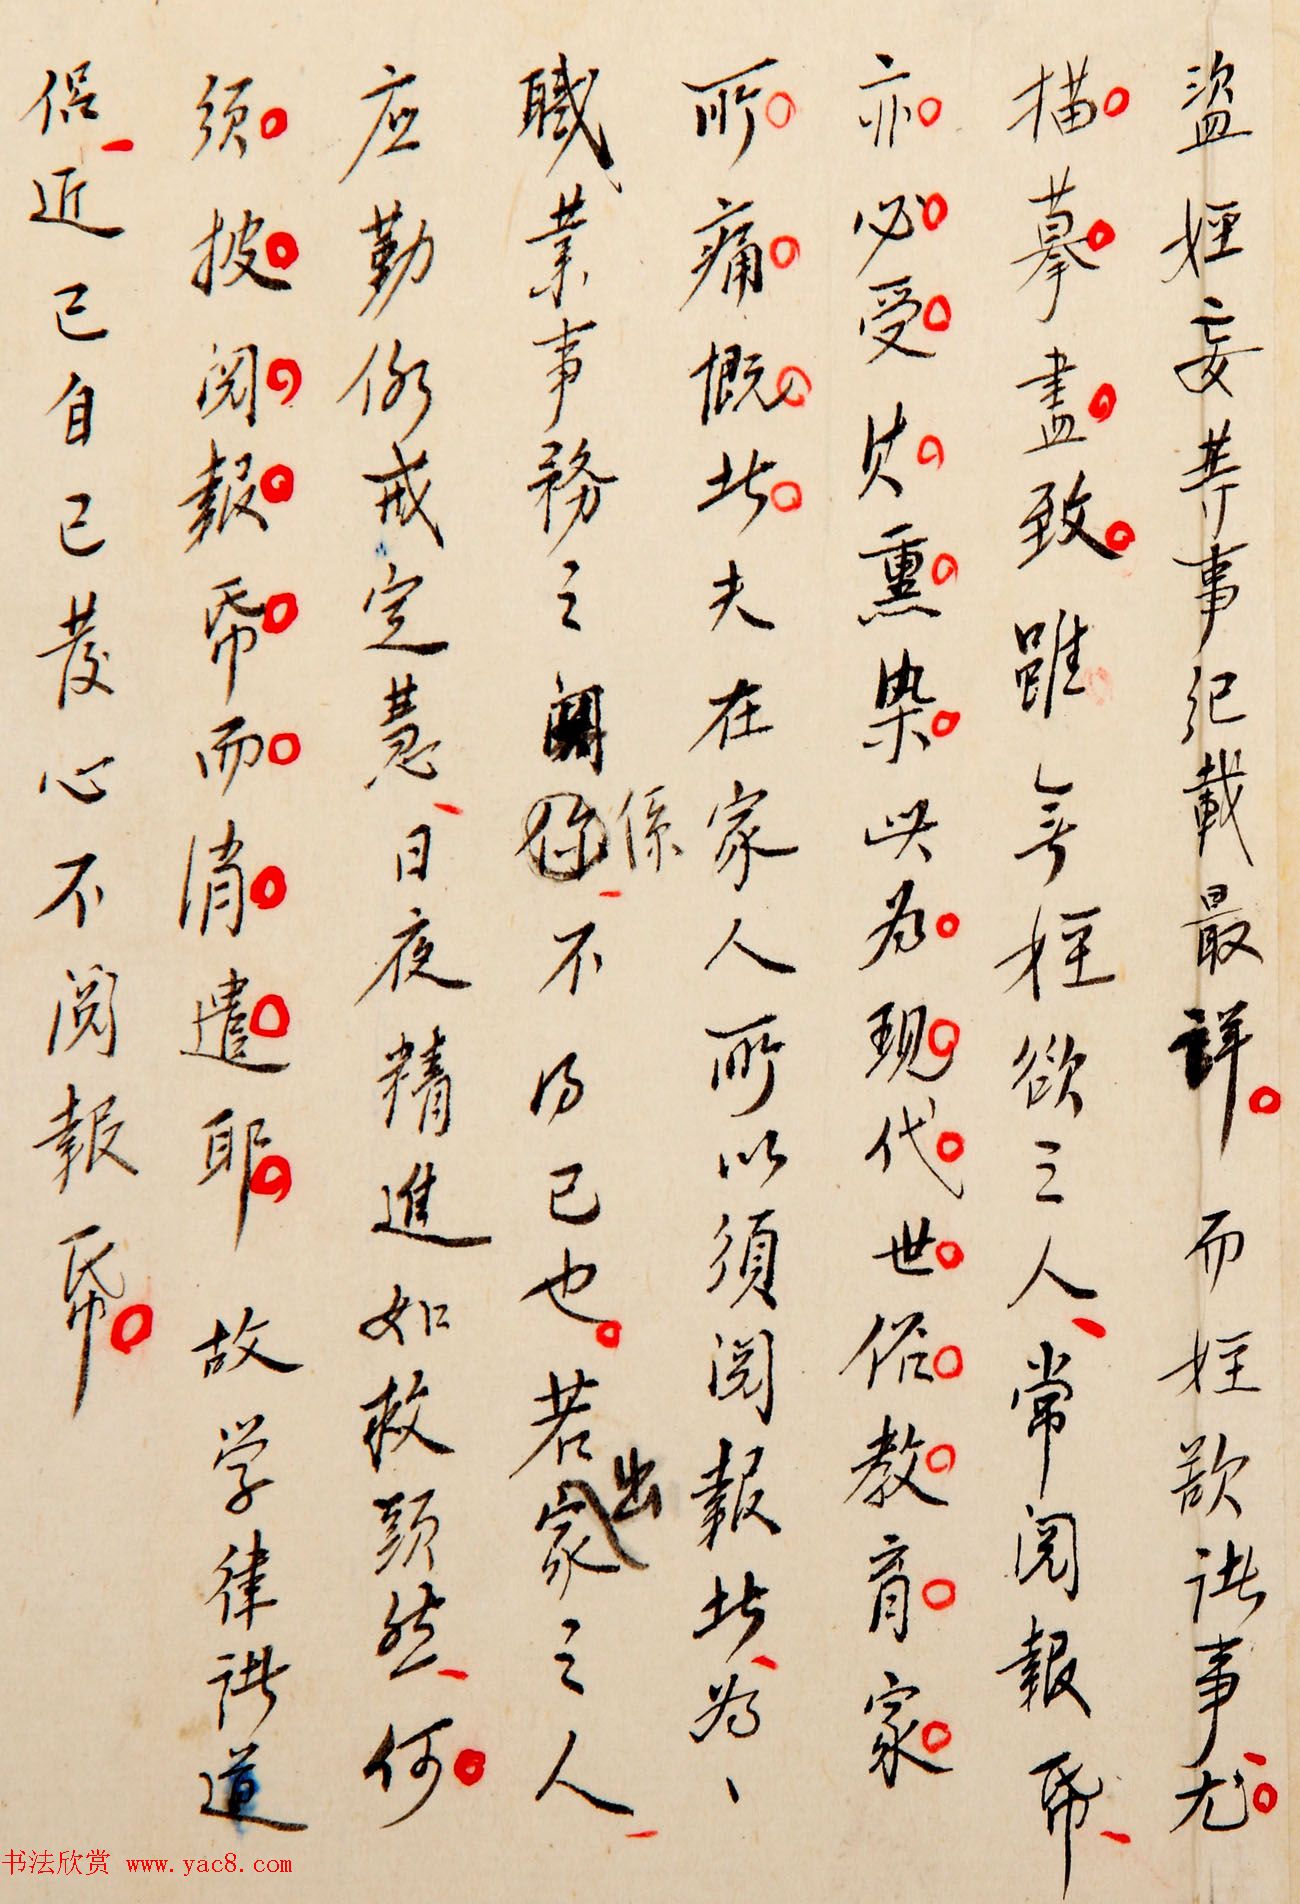 盜婬妄等事紀載最詳。而婬欲諸事尤
描摹盡致。雖無婬欲之人、常閱報帋、
亦必受其熏染。此為現代世俗教育家
所痛慨者。夫在家人所以須閱報者、為、
職業事務之關係、不得已也。若出家之人、
应勤修戒定慧、日夜精進如救頭然、何
須披閱報帋而消遣耶。故学律諸道
侣、近已自己發心不閱報帋。
书法欣赏 www.yac8.com